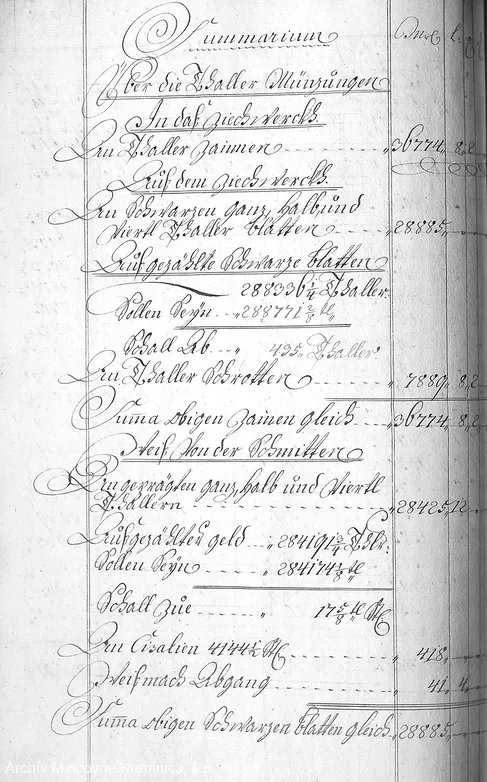 Summarium
Über die Thaller Münzungen
In das Ziechwerckh
An Thaller Zainnen „36774„ 8„2
Aus dem Ziechwerckh
An Schwarzen Ganz, Halb und
Viertl Thaller blatten „28885„
Aufgezählte Schwarze blatten
288336 1/4 Thaller
Sollen Seyn „288771 2/8 tl
Schall Ab „ 435„ Thaller
An Thaller Schrotten „ 7889„ 8„2
Summa obigen Zainen gleich „36774„ 8„2
Weiß von der Schmitten
An geprägten ganz, Halb und Viertl
Thallern „28425„12
Aufgezähltes geld „ 284191 3/4 Thlr:
Sollen Seyn „ 284174 1/8 tl
Schall Zue „ 17 5/8 tl Stk
An Cisalien 4144 1/2 Stk „ 418„
Weißmach Abgang „ 41„ 4
Summa obigen Schwarzen blatten gleich „28885„
Archív Mincovne Kremnica, š.p.